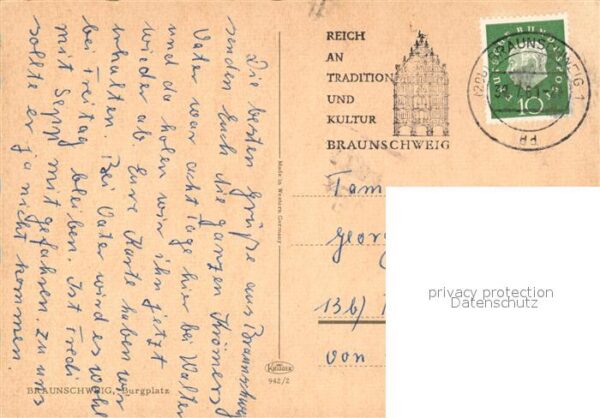 Die besten Grüße aus Braunschweig
senden Euch die ganzen Krömers
Vater war acht Tage hier bei Walter
und da holen wir ihn jetzt
wieder ab. Eure Karte haben wir
erhalten. Bei Vater wird es wohl
bei Freitag bleiben. Ist Fredi
mit Sepp mitgefahren. zu uns
sollte er ja nicht kommen
BRAUNSCHWEIG, Burgplatz
Made in Western Germany
Krüger
942/2
REICH
AN
TRADITION
UND
KULTUR
BRAUNSCHWEIG
DEUTSCHE BUNDESPOST
10
BRAUNSCHWEIG 1
Fam
Georg
13b)
von
privacy protection
Datenschutz